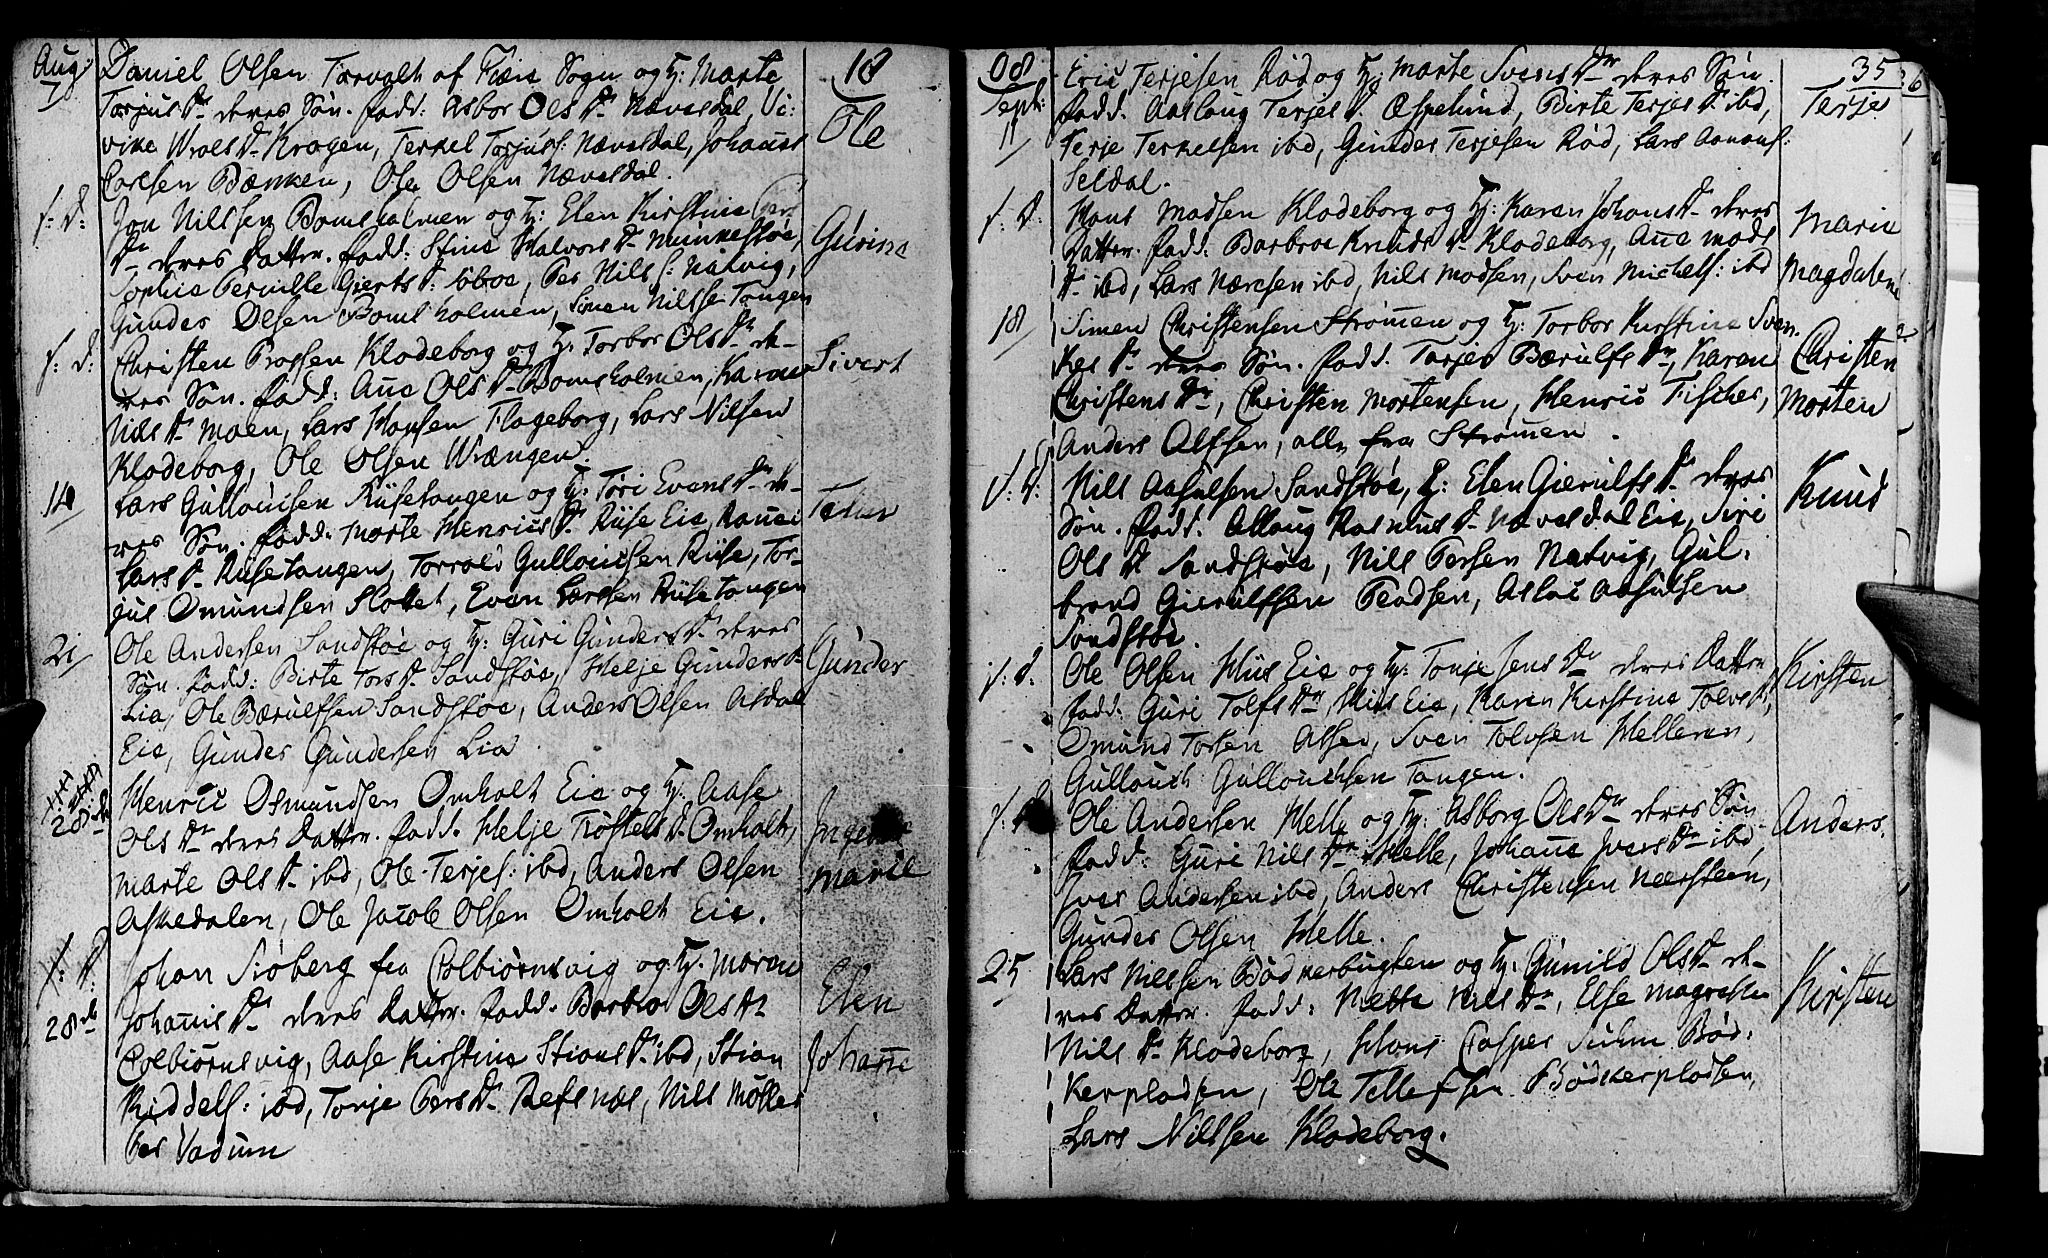 Aug: 18
7 Daniel Olsen Torvalt af Fiæs Sogn og H: Marte
Torjus Dr deres Søn. fadd: Asbor Ols Dr Nævesdal, Vi: Ole
vike Wroes Dr Kragen, Terkel Torjus: Nævesdal, Johannes
Carlsen Bænken, Ole Olsen Nævesdal.
s: D: Jon Nilssen Bomsholmen og H: Elen Kirstine Lars
Dr deres Datter. fadd: Stine Halvors Dr Munkestøe, Gurine
Sophie Pernille Gierts D: ibd, Per Nils: Natvig,
Gunder Olsen Bomsholmen, Simen Nilsse Tangen
s: D: Christen Brossen Klodeborg og H: Torbor Ols Dr de- Sivert
res Søn. fadd: Ane Ols Dr Bomsholmen, Karen
Nils Dr Moen, Lars Hansen Flageborg, Lars Nilsen
Klodeborg, Ole Olsen Wrængen.
14 Lars Gullouvsen Riisetangen og H: Tori Evens Dr de-
res Søn. fadd: Marte Henrics Dr Riise Eie,
Lars Dr Riisetangen, Torrald Gullouvsen Riise, Tor-
jus Omundsen Slottet, Even Larssen Riisetangen
21 Ole Andersen Sandstøe og H: Guri Gunders Dr deres
Søn. fadd: Birte Tors Dr Sandstøe, Helje Gunders D Gunder
Lia, Ole Bærulfsen Sandstøe, Anders Olsen Asdal
Eie, Gunder Gundersen Lia.
28de Henric Osmundsen Omholt Eie og H: Aase
Ols Dr deres Datter. fadd. Helje Trostels D. Omholt, Inge
Marte Ols Dr ibd, Ole Terjes: ibd, Anders Olsen Marie
Askedalen, Ole Jacob Olsen Omholt Eie.
28de Johan Siøberg fra Colbiørnsvig og H. Maren
Johannis Dr deres Datter. fadd. Barbro Ols Dr Elen
Colbiørnsvig, Aase Kirstine Stians Dr ibd, Stian Johanne
Kiddels: ibd, Tonje Pers Dr Refsnes, Nils Møller
Per Vadum
08 35 36
Sept: Eric Terjesen Rød og H: Marte Svens Dr deres Søn. Terje
11 fadd. Aaslaug Terjes D. Espelund, Birte Terjes Dr ibd,
Terje Terkelsen ibd, Gunder Terjesen Rød, Lars Aanons:
Seldal.
s: D: Hans Madsen Klodeborg og H: Karen Johans Dr deres Marie
Datter. fadd: Barbroe Knuds Dr Klodeborg, Ane Mads Magdalene
Dr ibd, Lars Næresen ibd, Nils Madsen, Sven Michels: ibd
18 Simen Christensen Strømen og H: Torbor Kirstine Sven
kes Dr deres Søn. fadd. Terjer Bærulfs Dr, Karen Christen
Christens Dr, Christen Mortensen, Henric Fischer, Morten
Anders Alfsen, alle fra Strømen.
s: D. Nils Aasulsen Sandstøe, H: Elen Gierulfs Dr deres Knud
Søn. fadd. Aslaug Rasmus Dr Nævesdal Eie, Siri
Ols Dr Sandstøe, Nils Persen Natvig, Gul-
brand Gierulfsen Pladsen, Aslac Aasulsen
Sandstøe.
s: D. Ole Olsen Hiis Eie og H: Tonje Jens Dr deres Datter Kirsten
fadd: Guri Tolfs Dr, Hiis Eie, Karen Kirstine Tolvs D,
Omund Torsen Alsen, Sven Tolvsen Helleren,
Gullouch Gullouchsen Tangen.
s: D Ole Andersen Helle og H: Asborg Ols Dr deres Søn Anders.
fadd: Guri Nils Dr Helle, Johanne Ivers Dr ibd,
Iver Andersen ibd, Anders Christensen Nærsteen,
Gunder Olsen Helle.
25 Lars Nielsen Bødkerbugten og H: Gunild Ols Dr de- Kirsten
res Datter. fadd: Mette Nils Dr, Else Magrethe
Nils Dr Klodeborg, Hans Casper Suhm Bød:
kerpladsen, Ole Tellefsen Bødkerpladsen,
Lars Nilssen Klodeborg.